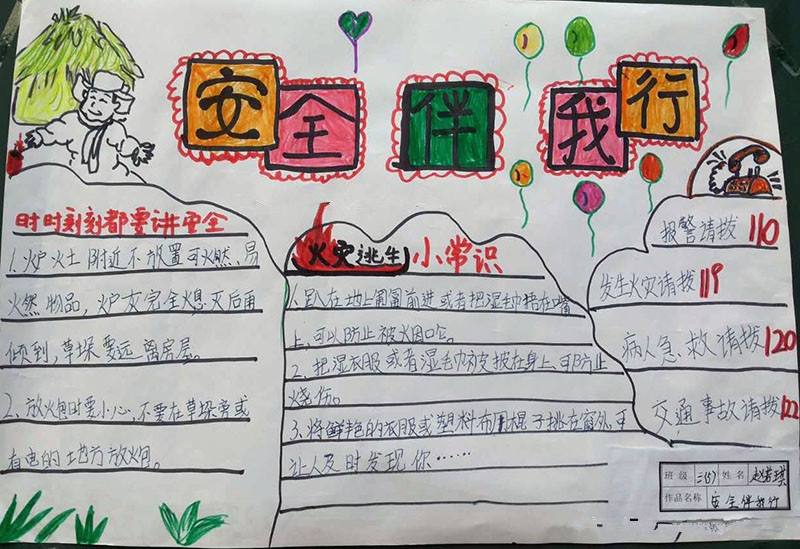 安全伴我行
时时刻刻都要讲安全
1.炉火土附近不放置可火然、易
火然物品，炉灰完全熄灭后再
倾倒，草垛要远离房屋。
2、放火炮时要小心，不要在草垛旁或
有电的地方放炮。
火灾逃生小常识
1.趴在地上匍匐前进或者把湿毛巾捂在嘴
上,可以防止被火因呛。
2、把湿衣服或者湿毛巾被披在身上,可防止
烧伤。
3.将鲜艳的衣服或塑料布用棍子挑在窗外,可
让人及时发现你……
报警请拨 110
发生火灾请拨119
病人急救请拨120
交通事故请拨122
班级 三(5) 姓名 赵若琪
作品名称 安全伴我行